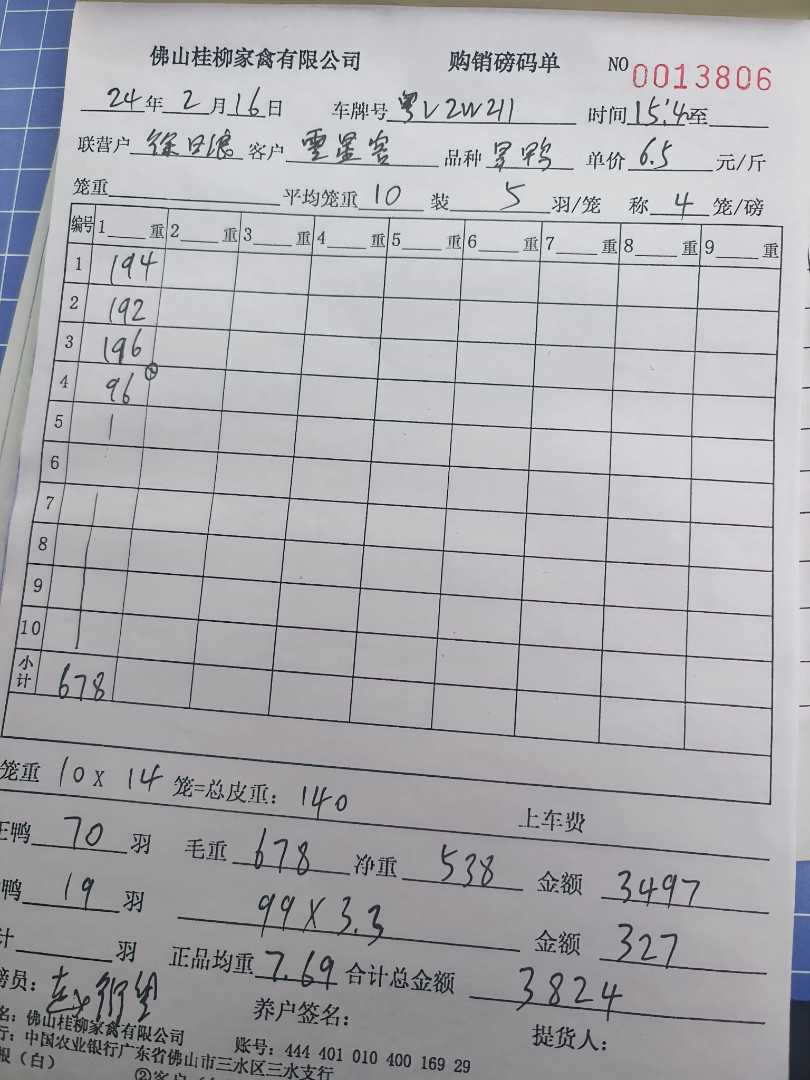 佛山桂柳家禽有限公司 购销磅码单 NO 0013806
24年2月16日 车牌号粤V2W211 时间15:4至
联营户 徐日浪 客户 雲星客 品种 单价 6.5 元/斤
笼重 平均笼重 10 装 5 羽/笼 称 4 笼/磅
编号 1 重 2 重 3 重 4 重 5 重 6 重 7 重 8 重 9 重
1 194
2 192
3 196
4 96 ②
5
6
7
8
9
10
小计 678
笼重 10 x 14 笼=总皮重: 140
上车费
正鸭 70 羽 毛重 678 净重 538 金额 3497
鸭 19 羽 99 X 3.3 金额 327
计 羽 正品均重 7.69 合计总金额 3824
磅员: 养户签名: 提货人:
名: 佛山桂柳家禽有限公司 账号: 444 401 010 400 169 29
行: 中国农业银行广东省佛山市三水区三水支行
根(白) ②客户(